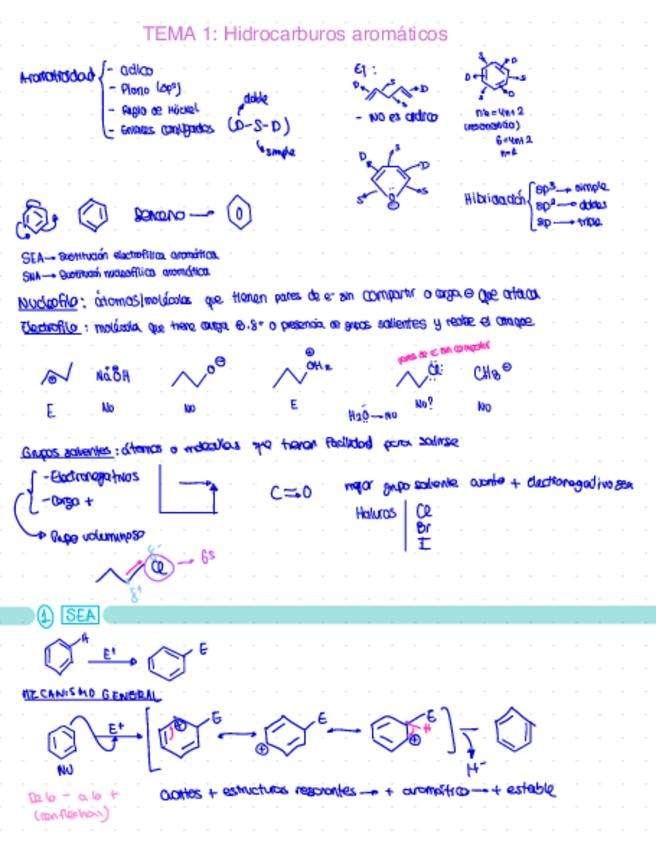 TEMA 1: Hidrocarburos aromáticos
Aromaticidad
- cíclico
- Plano (sp²)
- Regla de Hückel
- Enlaces conjugados (D-S-D)
doble
simple
EJ:
D S D
- NO es cíclico
S D S D S D
(resonancia)
6=4n+2
n=1
D S D S S
Hibridación
sp³ → simple
sp² → dobles
sp → triple
Benceno →
SEA → Sustitución electrofílica aromática
SNA → Sustitución nucleofílica aromática
Nucleófilo: átomos/moléculas que tienen pares de e⁻ sin compartir o carga ⊖ que ataca
Electrófilo: molécula que tiene carga ⊕, δ⁺ o presencia de grupos salientes y recibe el ataque.
pares de e⁻ sin compartir
NaOH O⊖ OH₂ Cl: CH3⊖
E No No E H2O → No No? No
Grupos salientes: átomos o moléculas que tienen facilidad para salirse
- Electronegativos
- Carga +
→ Grupo voluminoso
C=O
mejor grupo saliente cuanto + electronegativo sea
Haluros
Cl
Br
I
δ⁻
Cl → GS
δ⁺
1 SEA
H E⁺ E
MECANISMO GENERAL
NU E⁺ E E E H
H⁻
De b - a b +
(con flechas)
cuantas + estructuras resonantes → + aromático → + estable